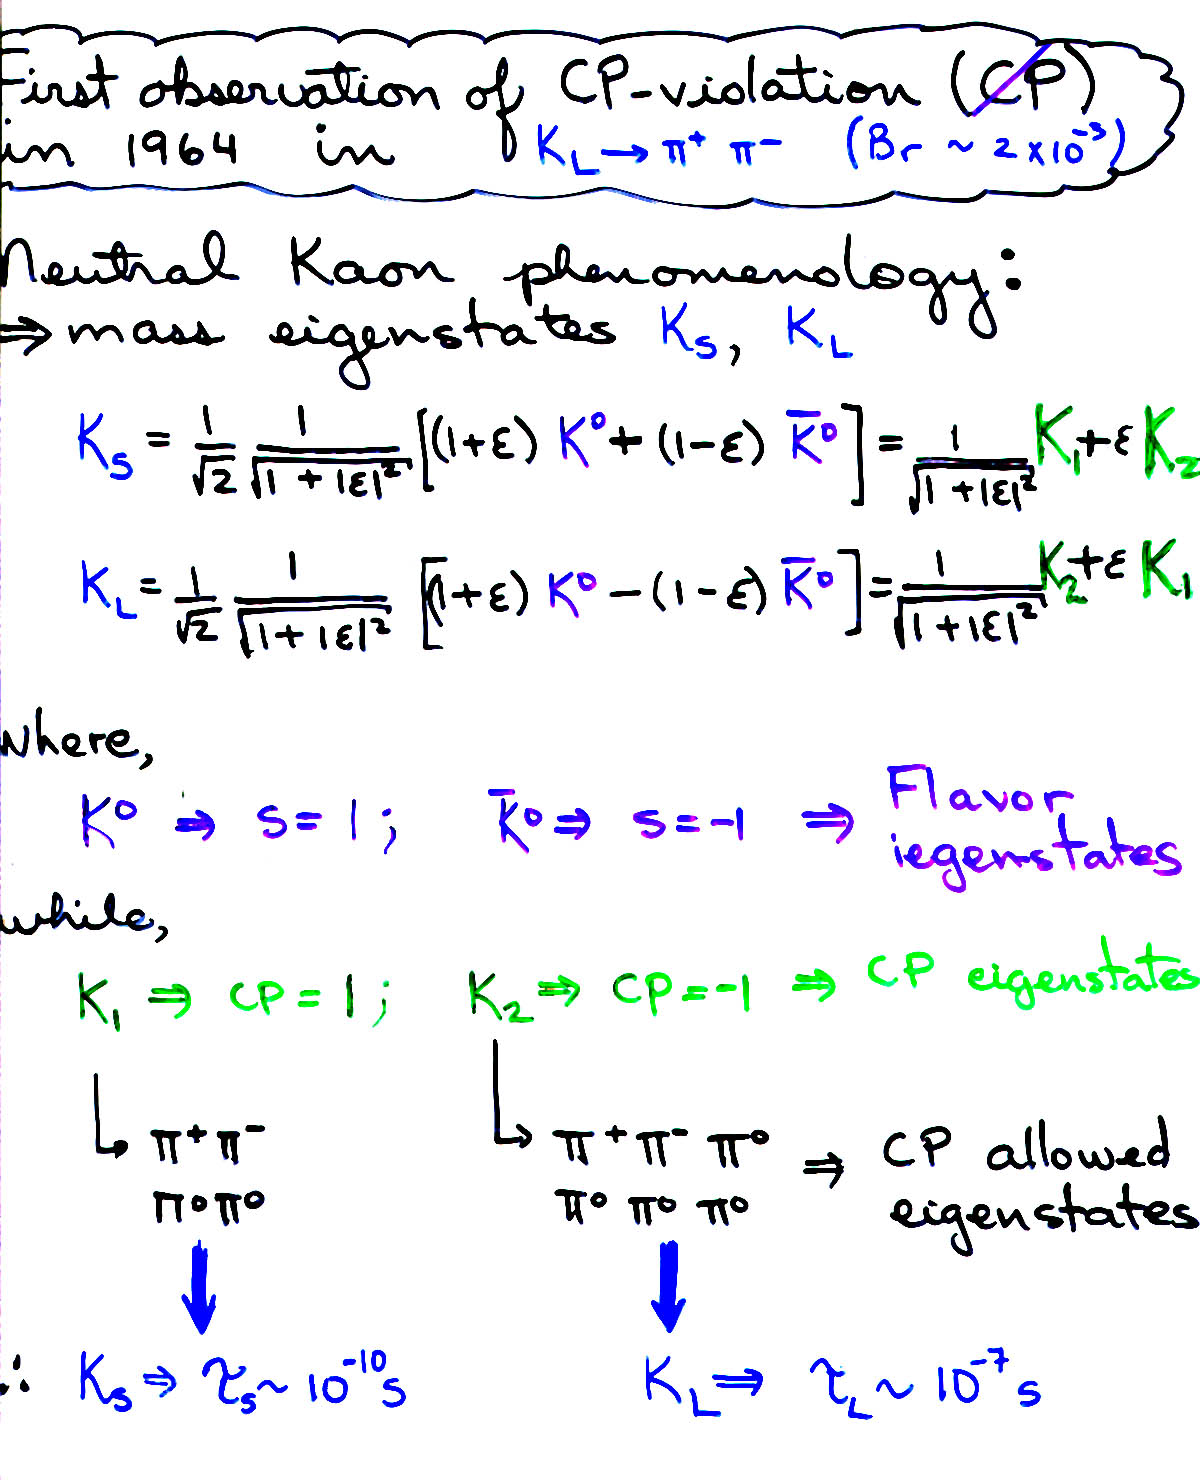 First observation of CP-violation (CP)
in 1964 in K_L → π⁺ π⁻ (Br ~ 2 x 10⁻³)
Neutral Kaon phenomenology:
⇒ mass eigenstates K_S, K_L
K_S = 1/√2 1/√(1 + |ε|²) [(1+ε) K⁰ + (1-ε) K̅⁰] = 1/√(1 + |ε|²) K₁ + ε K₂
K_L = 1/√2 1/√(1 + |ε|²) [(1+ε) K⁰ - (1-ε) K̅⁰] = 1/√(1 + |ε|²) K₂ + ε K₁
where,
K⁰ ⇒ S = 1; K̅⁰ ⇒ S = -1 ⇒ Flavor
iegenstates
while,
K₁ ⇒ CP = 1; K₂ ⇒ CP = -1 ⇒ CP eigenstates
π⁺ π⁻ π⁺ π⁻ π⁰ ⇒ CP allowed
π⁰ π⁰ π⁰ π⁰ π⁰ eigenstates
∴ K_S ⇒ τ_S ~ 10⁻¹⁰ s K_L ⇒ τ_L ~ 10⁻⁷ s